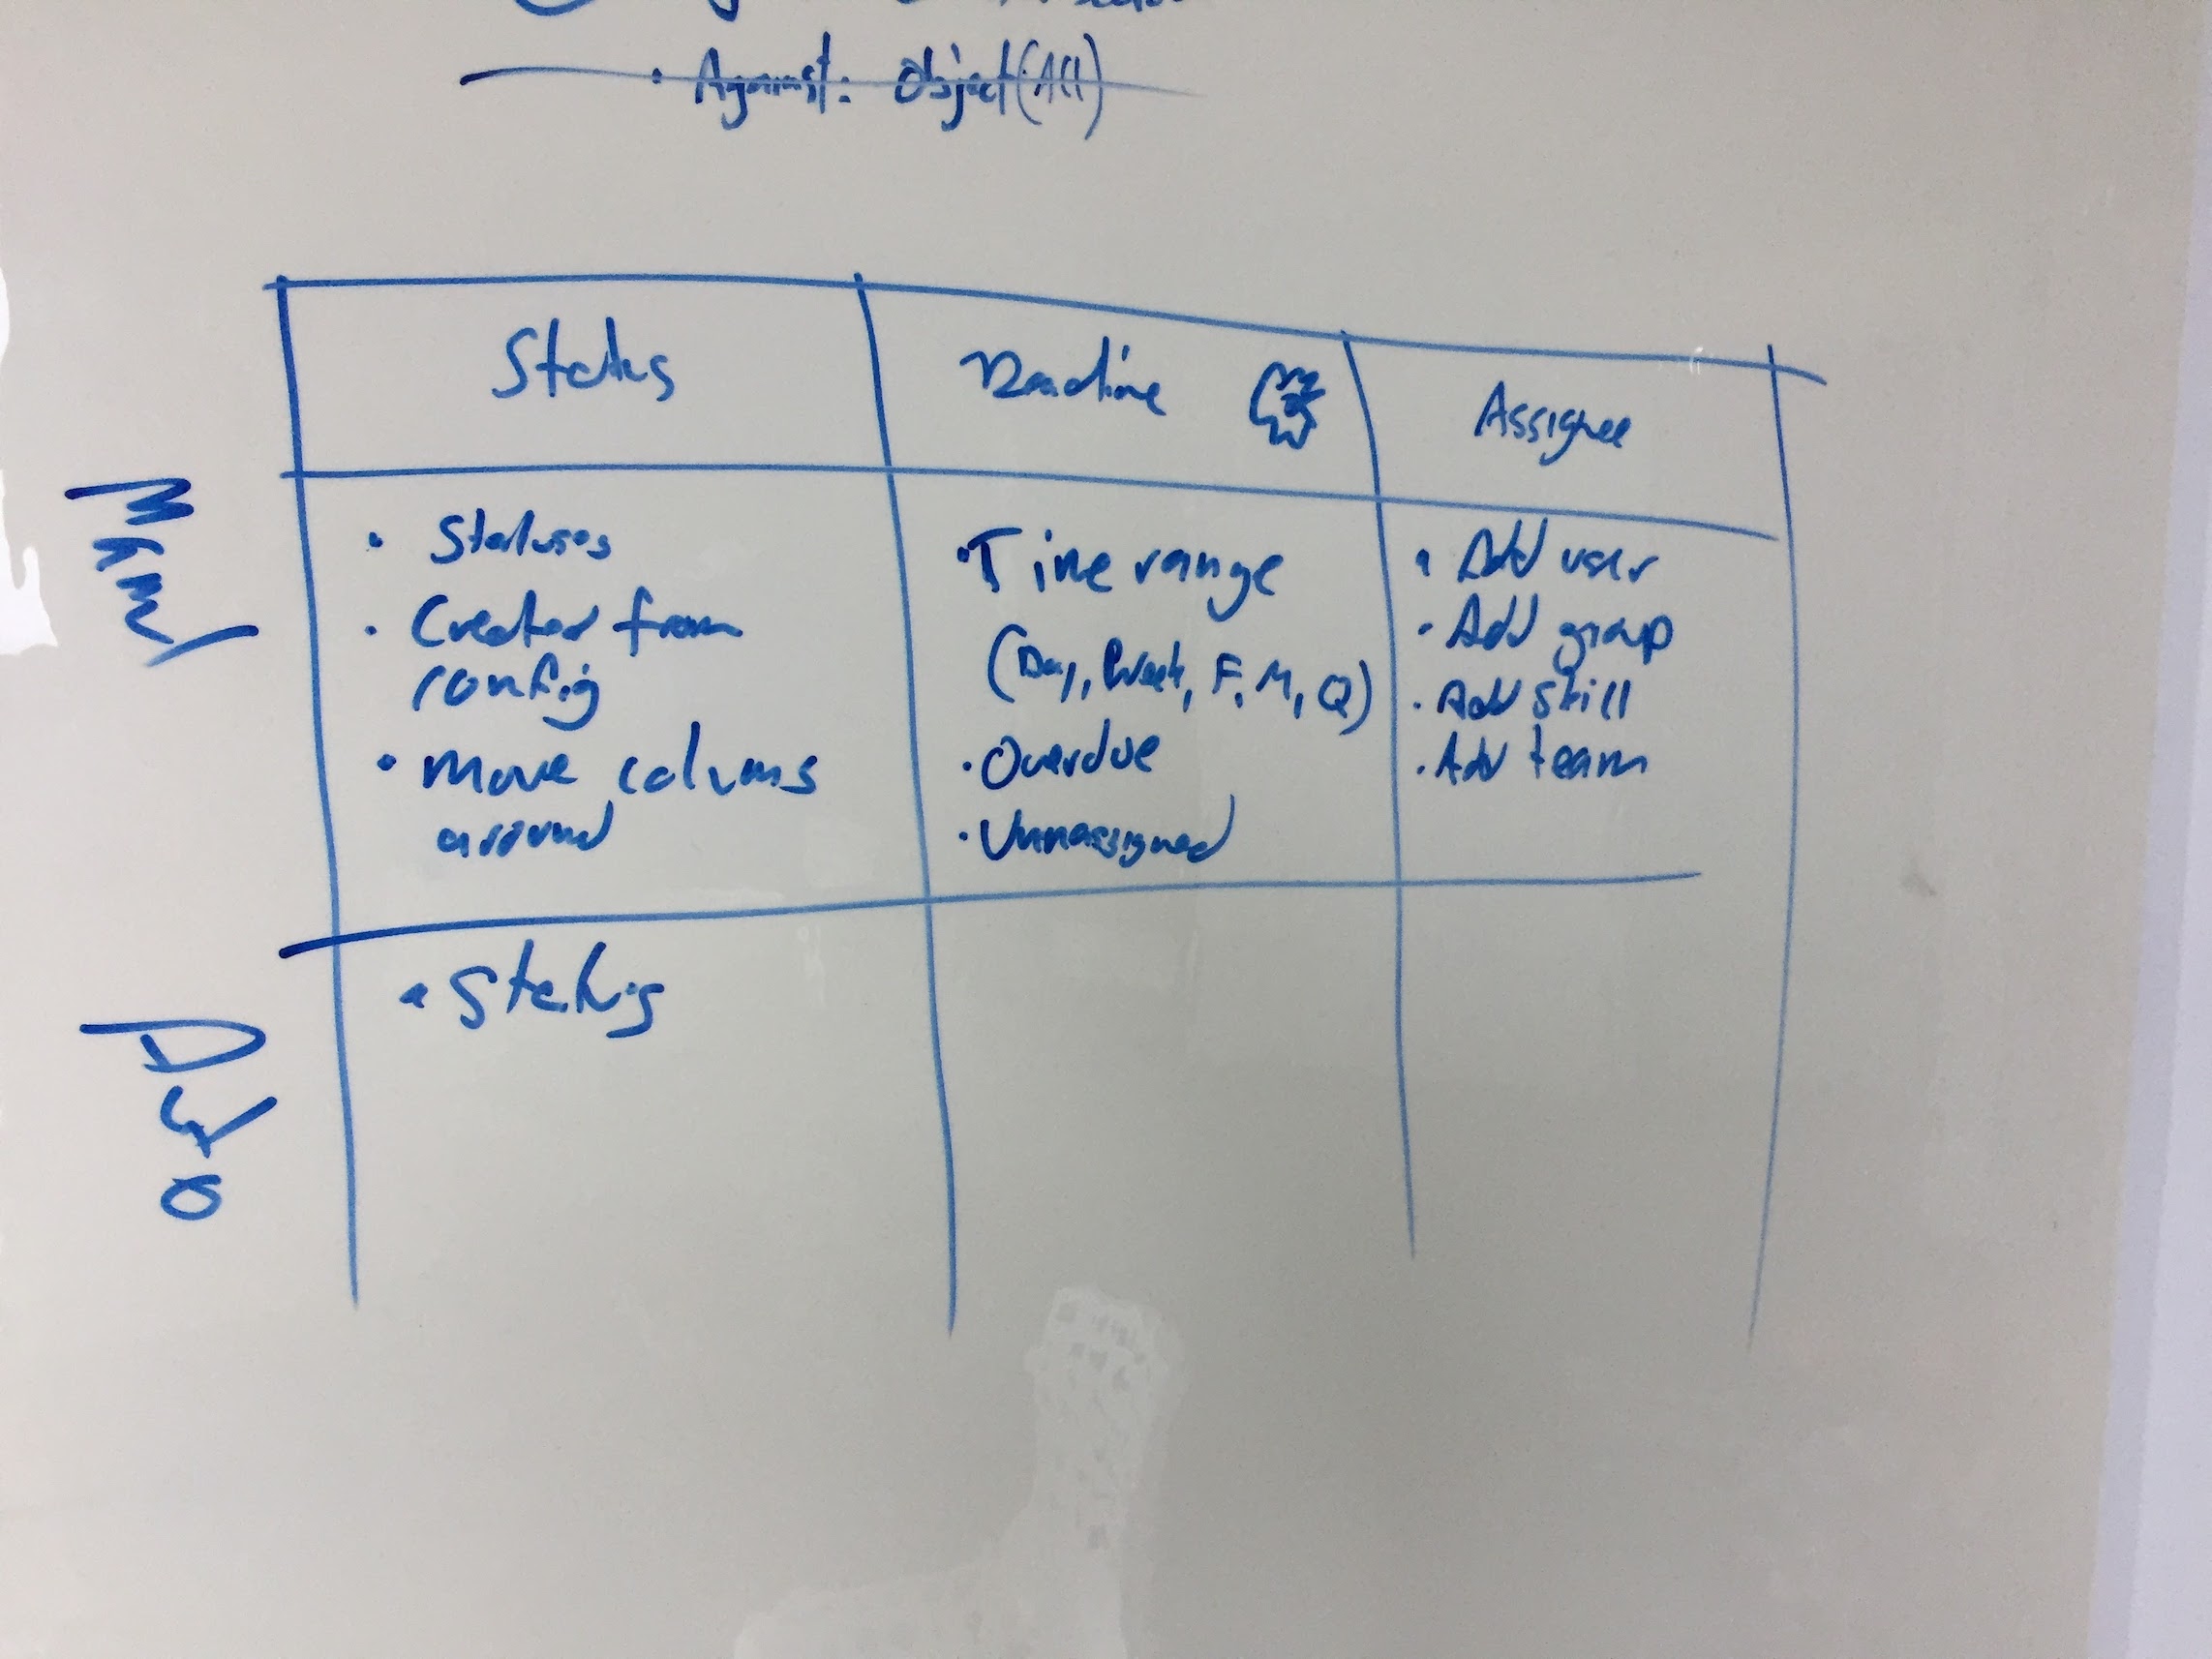 · Against: Object(All)
Status
Deadline
Assignee
· Statuses
· Created from
config
· Move colums
around
· Time range
(Day, Week, F, M, Q)
· Overdue
· Unnassigned
· Add user
· Add group
· Add skill
· Add team
· Status
Auto